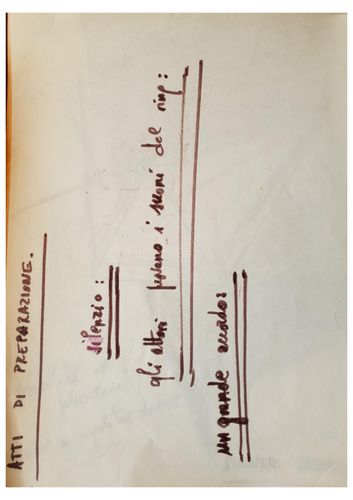 ATTI DI PREPARAZIONE.
silenzio:
gli attori i suoni del ring:
un grande accordo: